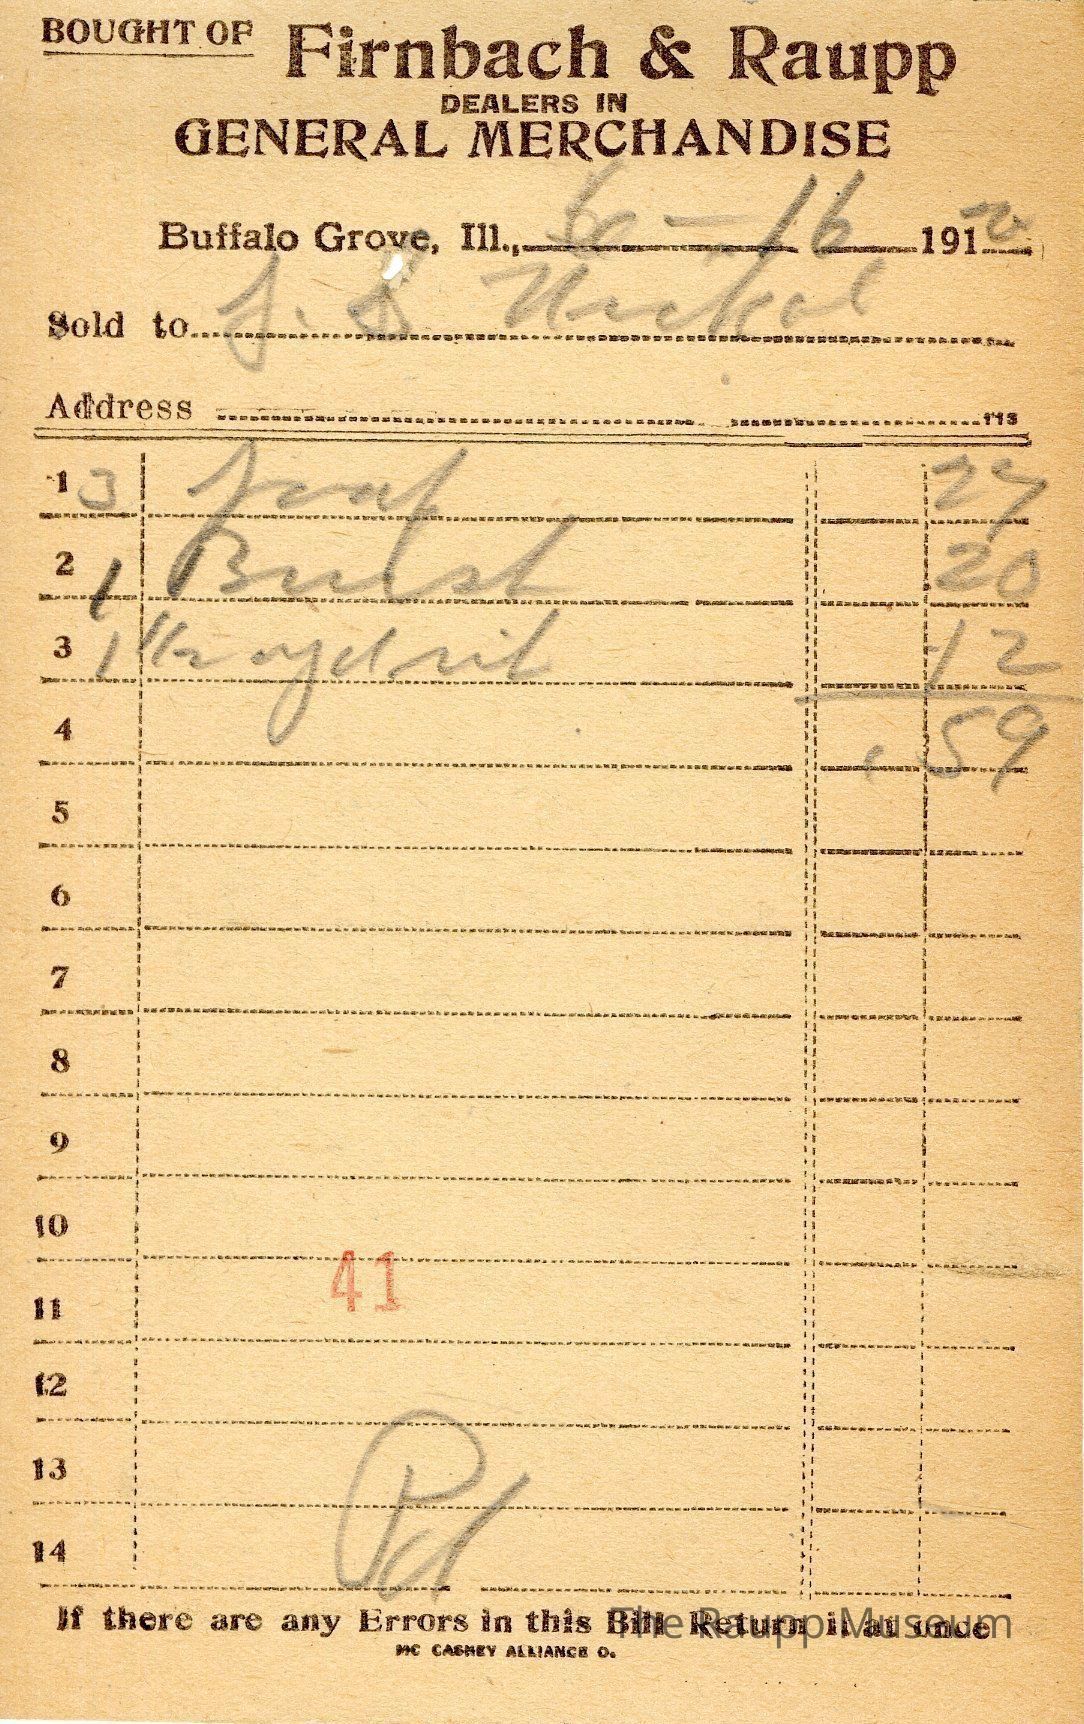 BOUGHT OF Firnbach & Raupp
DEALERS IN
GENERAL MERCHANDISE
Buffalo Grove, Ill., 6 - 16 191
Sold to J. S
Address
113
1 3 27
2 1 20
3 1 12
4 .59
5
6
7
8
9
10
41
11
12
13
Pd
14
If there are any Errors in this Bill Return it at once
The Raupp Museum
MC CASKEY ALLIANCE O.